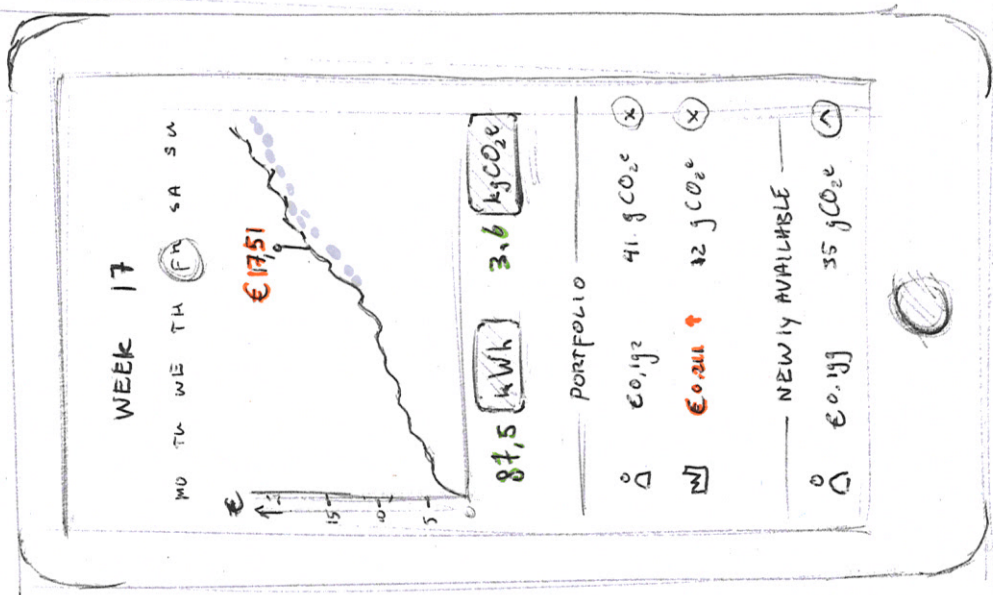 WEEK 17
MO TU WE TH FR SA SU
€
€17,51
15
10
5
0
87,5 kWh 3.6 kgCO₂e
PORTFOLIO
€0,192 41. gCO₂e x
€0.211 ↑ 32 gCO₂e x
NEWLY AVAILABLE
€0.199 35 gCO₂e ^